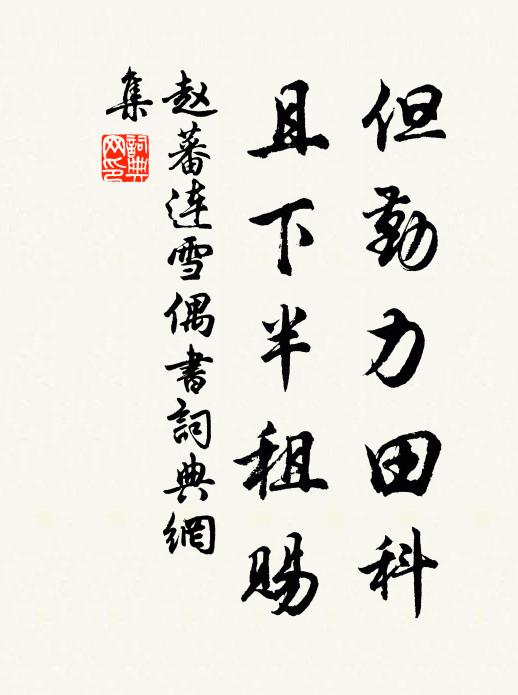 但勤力田科
且下半租賜
赵蕃连雪偶書詞典網
集
詞典
网印